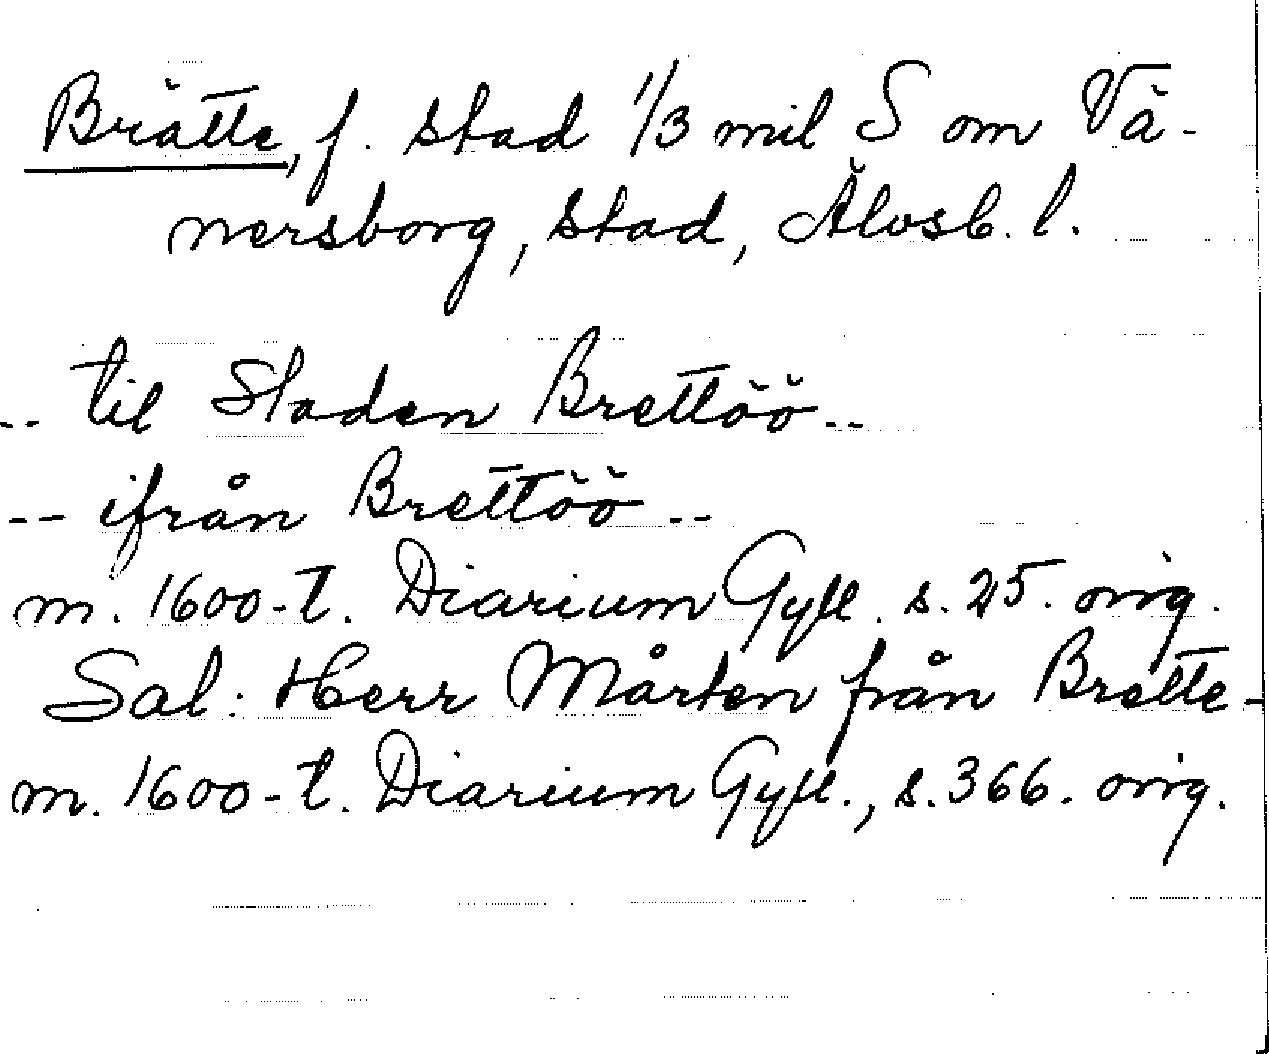 Brätte, f. stad 1/3 mil S om Vä-
nersborg, stad, Älvsb. l.
-- til Staden Brettöö --
-- ifrån Brettöö --
m. 1600-t. Diarium Gyll. s. 25. orig.
Sal: Herr Mårten från Brette-
m. 1600-t. Diarium Gyll., s. 366. orig.